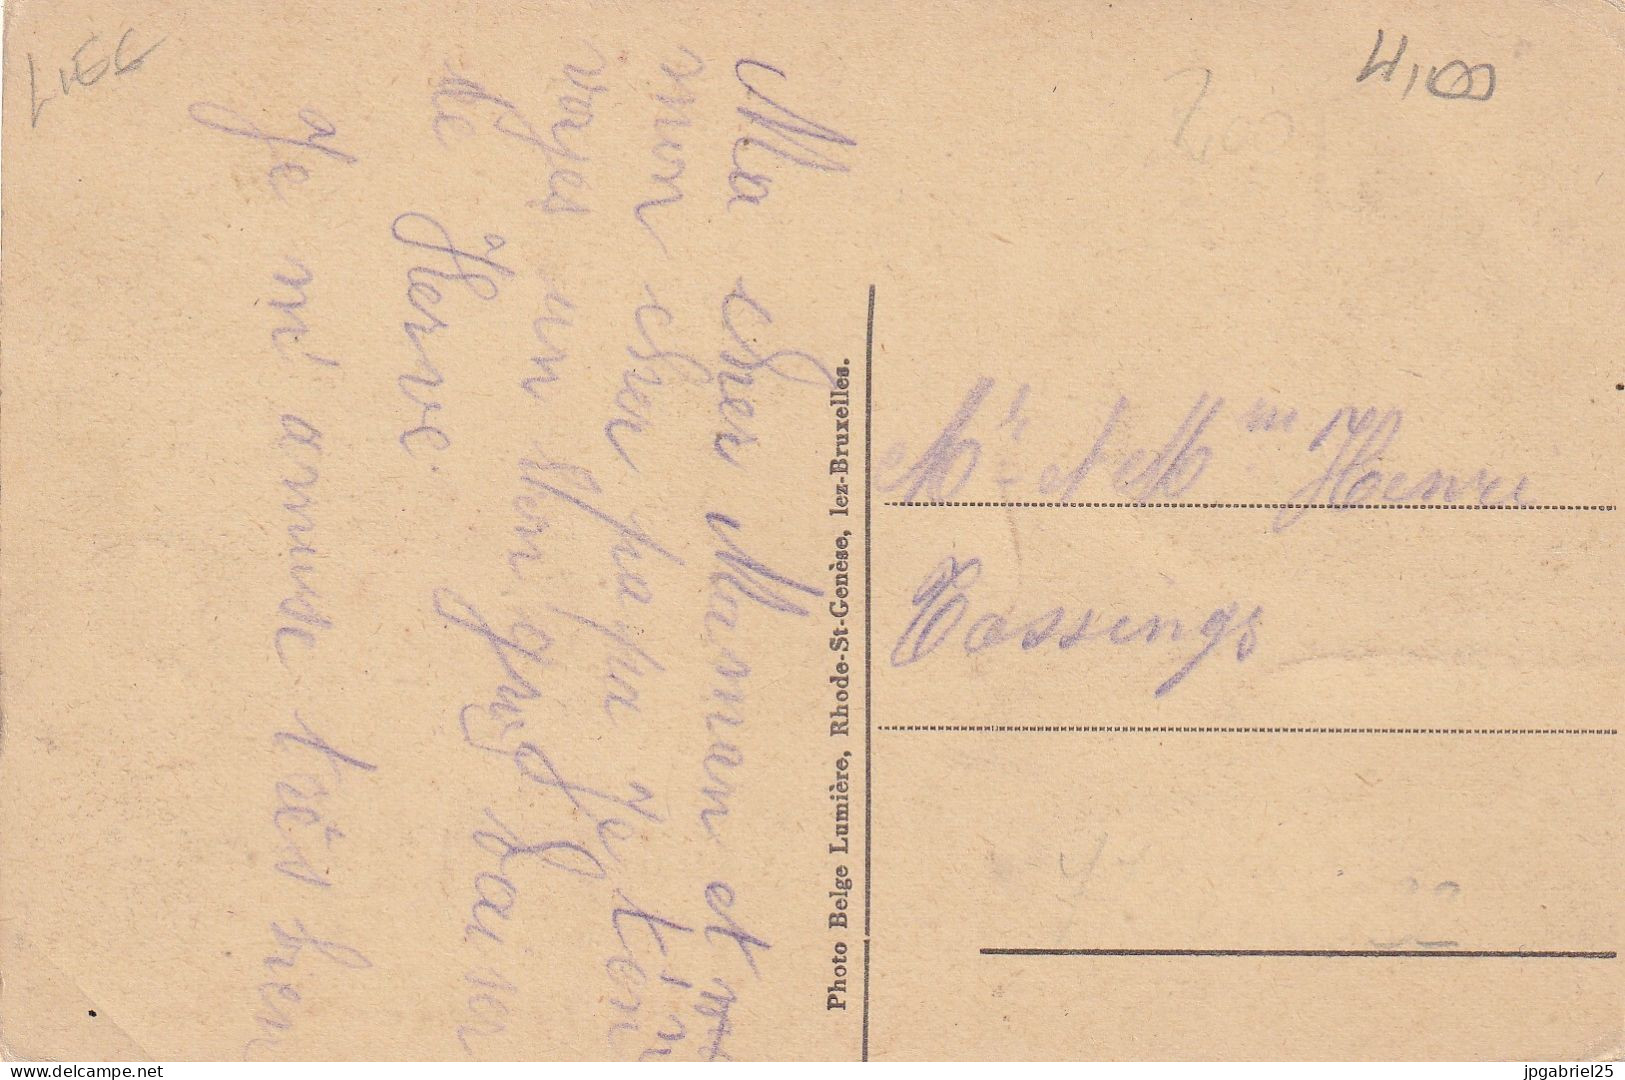 LIEG
4,00
Ma cher Maman et
mon cher papa Je t'en
voyes un bon gros baiser
de Herve
Je m'amuse très bien
Photo Belge Lumière, Rhode-St-Genèse, lez-Bruxelles.
Mr et Mme Henri
Cassings
delcampe.net
jpgabriel25